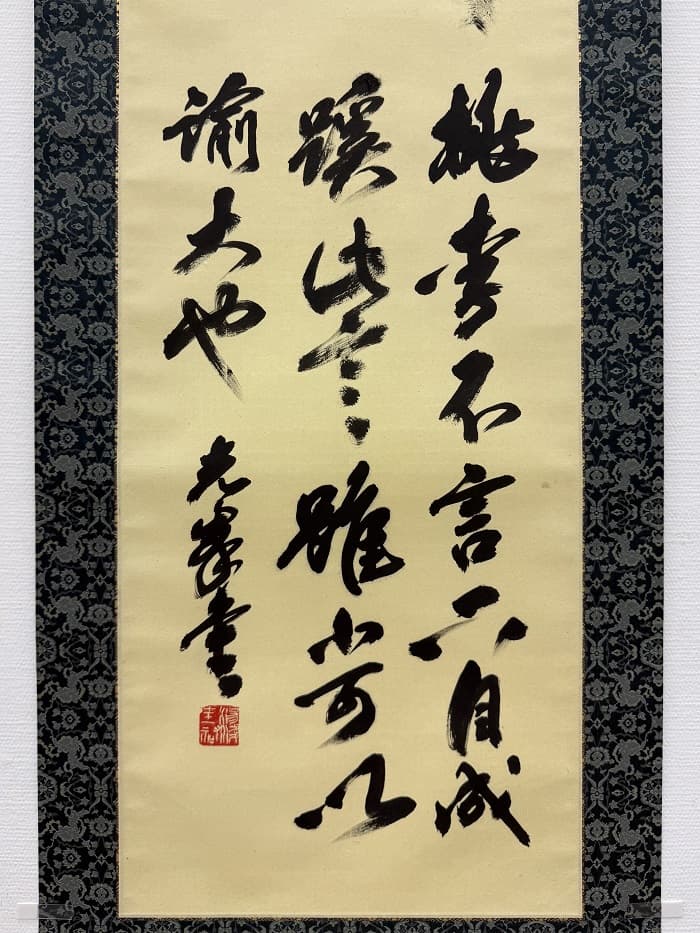 桃李不言下自成
蹊此言雖小可以
諭大也
光峯書